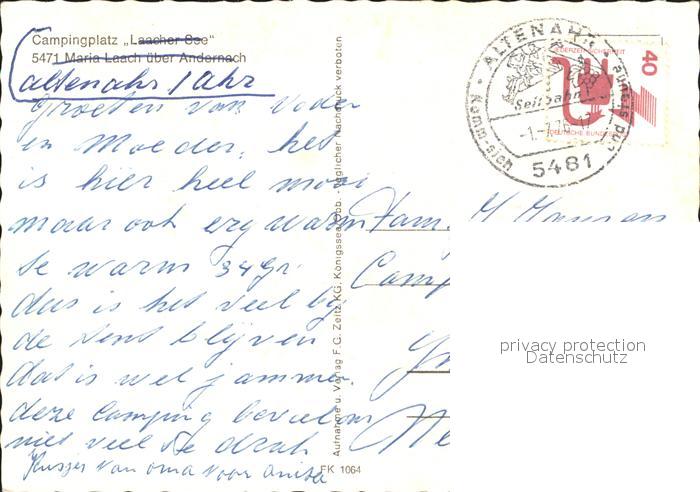 Campingplatz „Laacher See"
5471 Maria Laach über Andernach
altenahr / Ahr
Groeten van Vader
en Moeder, het
is hier heel mooi
maar ook erg warm
te warm 34gr.
dus is het veel bij
de tent blijven
dat is wel jammer.
deze Camping
niet veel te druk
Kusjes van oma voor anita
FK 1064
Aufnahme u. Verlag F.C. Zeitz KG, Königssee/Obb. - Jeglicher Nachdruck verboten
ALTENAHR
Seilbahn
5481
JEDERZEIT SICHERHEIT
40
DEUTSCHE BUNDESPOST
Fam.
privacy protection
Datenschutz